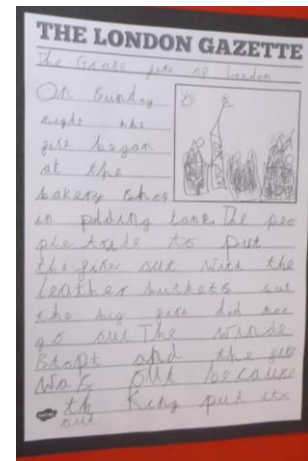 THE LONDON GAZETTE
The Grate fire of London
On Sunday
night the
fire began
at the
bakery shop
in pdding lane. The peo
ple tryde to put
the fire out with the
leather buckets but
the big fire did not
go out The winde
stopt and the fire
was out because
th King put it
out.